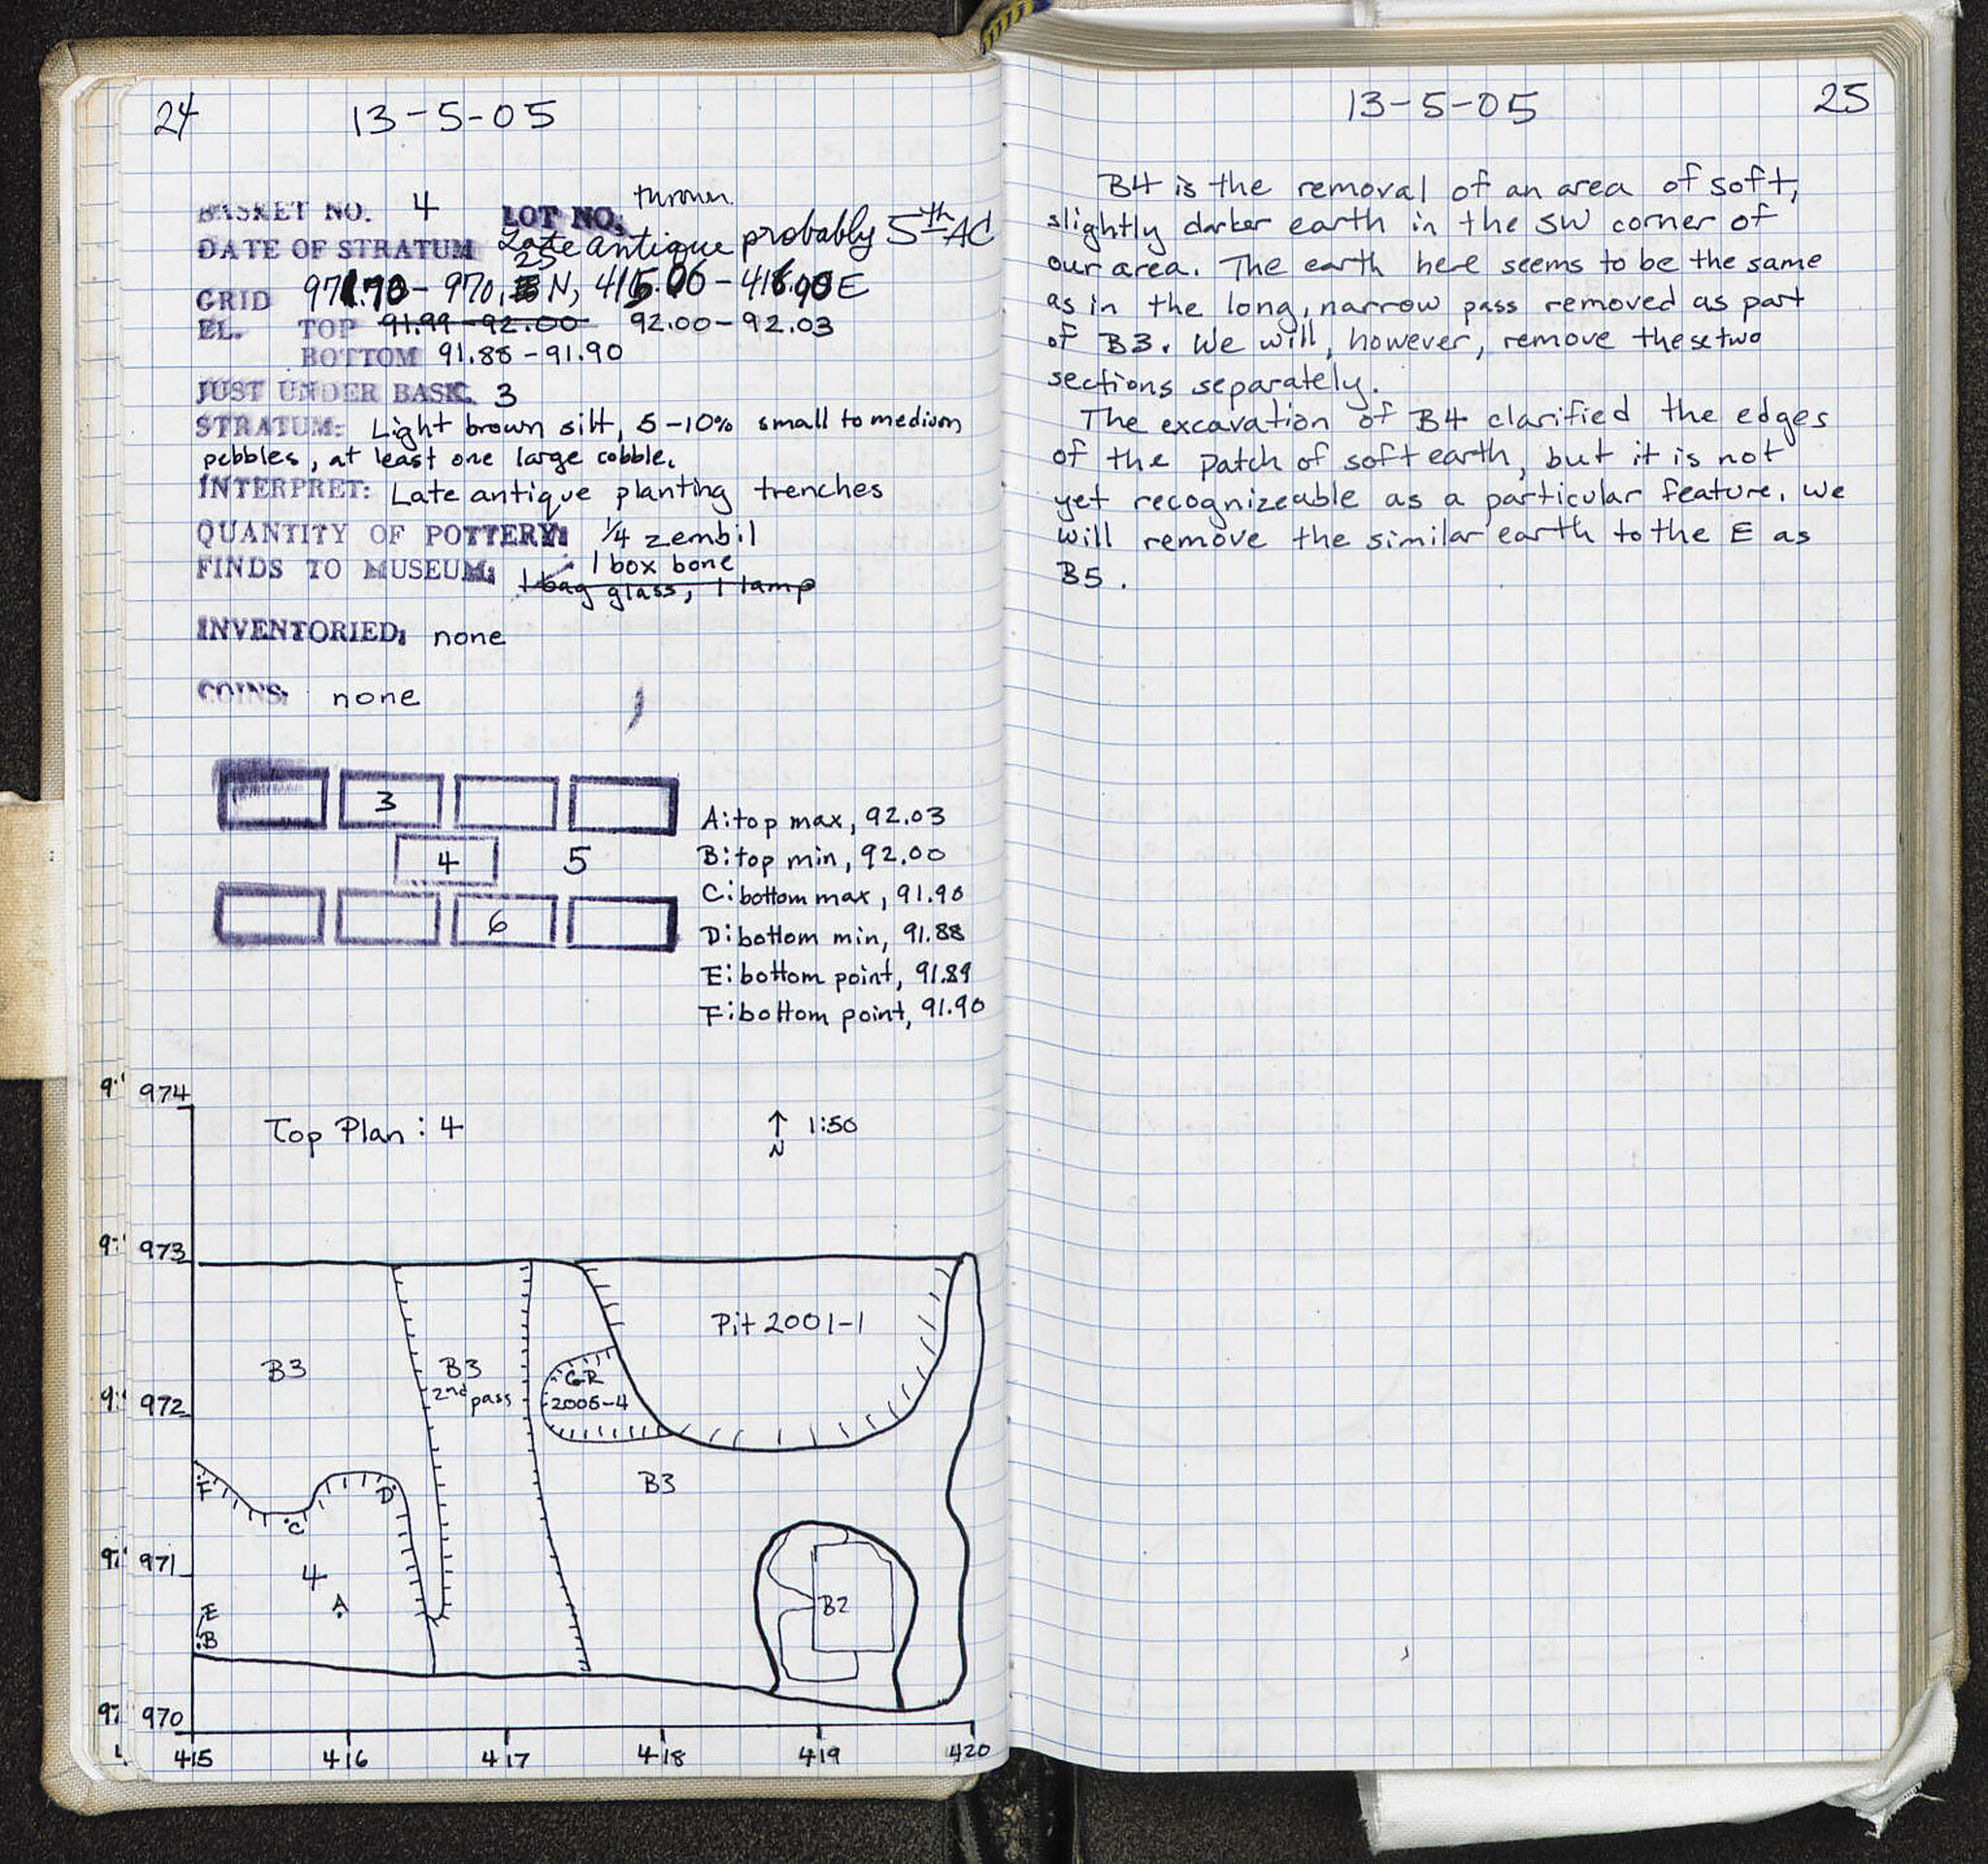 24
13-5-05
BASKET NO. 4 LOT NO. thrown
DATE OF STRATUM Late antique probably 5th AC
25
GRID 971.70 - 970. N, 415.00 - 416.90 E
EL. TOP 91.99 - 92.00 92.00 - 92.03
BOTTOM 91.88 - 91.90
JUST UNDER BASK. 3
STRATUM: Light brown silt, 5-10% small to medium
pebbles, at least one large cobble.
INTERPRET: Late antique planting trenches
QUANTITY OF POTTERY: 1/4 zembil
FINDS TO MUSEUM: 1 box bone
1 bag glass, 1 lamp
INVENTORIED: none
COINS: none
3
4 5
6
A: top max, 92.03
B: top min, 92.00
C: bottom max, 91.90
D: bottom min, 91.88
E: bottom point, 91.89
F: bottom point, 91.90
974
Top Plan: 4
↑ 1:50
N
973
Pit 2001-1
B3
B3
2nd pass
GR
2005-4
972
F
D
C
B3
971
4
A
E
B
B2
970
415 416 417 418 419 420
13-5-05
25
B4 is the removal of an area of soft,
slightly darker earth in the SW corner of
our area. The earth here seems to be the same
as in the long, narrow pass removed as part
of B3. We will, however, remove these two
sections separately.
The excavation of B4 clarified the edges
of the patch of soft earth, but it is not
yet recognizeable as a particular feature. We
will remove the similar earth to the E as
B5.